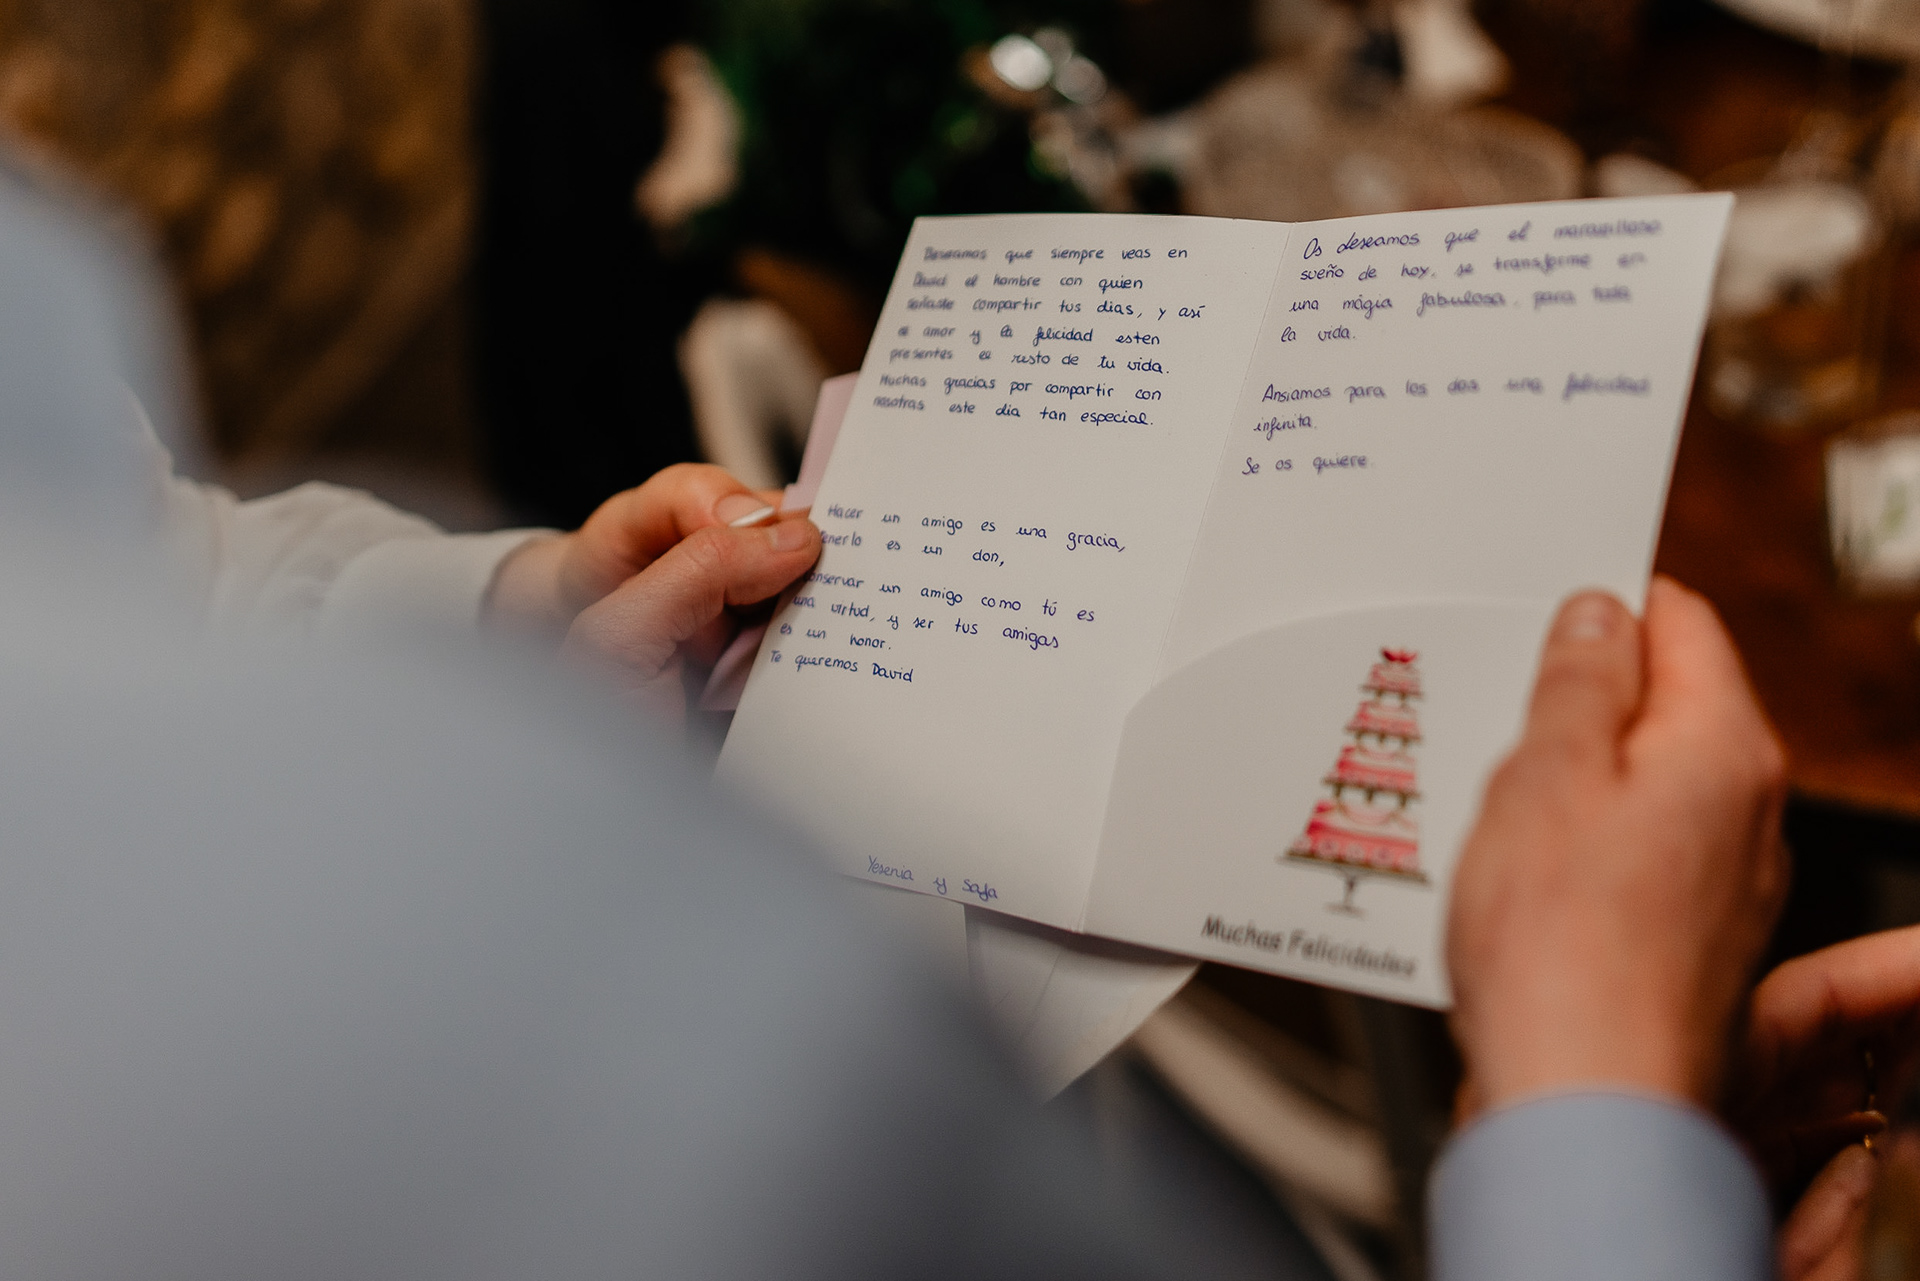 Deseamos que siempre veas en
David el hombre con quien
soñaste compartir tus dias, y así
el amor y la felicidad esten
presentes el resto de tu vida.
Muchas gracias por compartir con
nosotras este dia tan especial.
Hacer un amigo es una gracia,
tenerlo es un don,
conservar un amigo como tú es
una virtud, y ser tus amigas
es un honor.
Te queremos David
Yesenia y
Os deseamos que el maravilloso
sueño de hoy, se transforme en
una mágia fabulosa, para toda
la vida.
Ansiamos para los dos una felicidad
infinita.
Se os quiere.
Muchas Felicidades